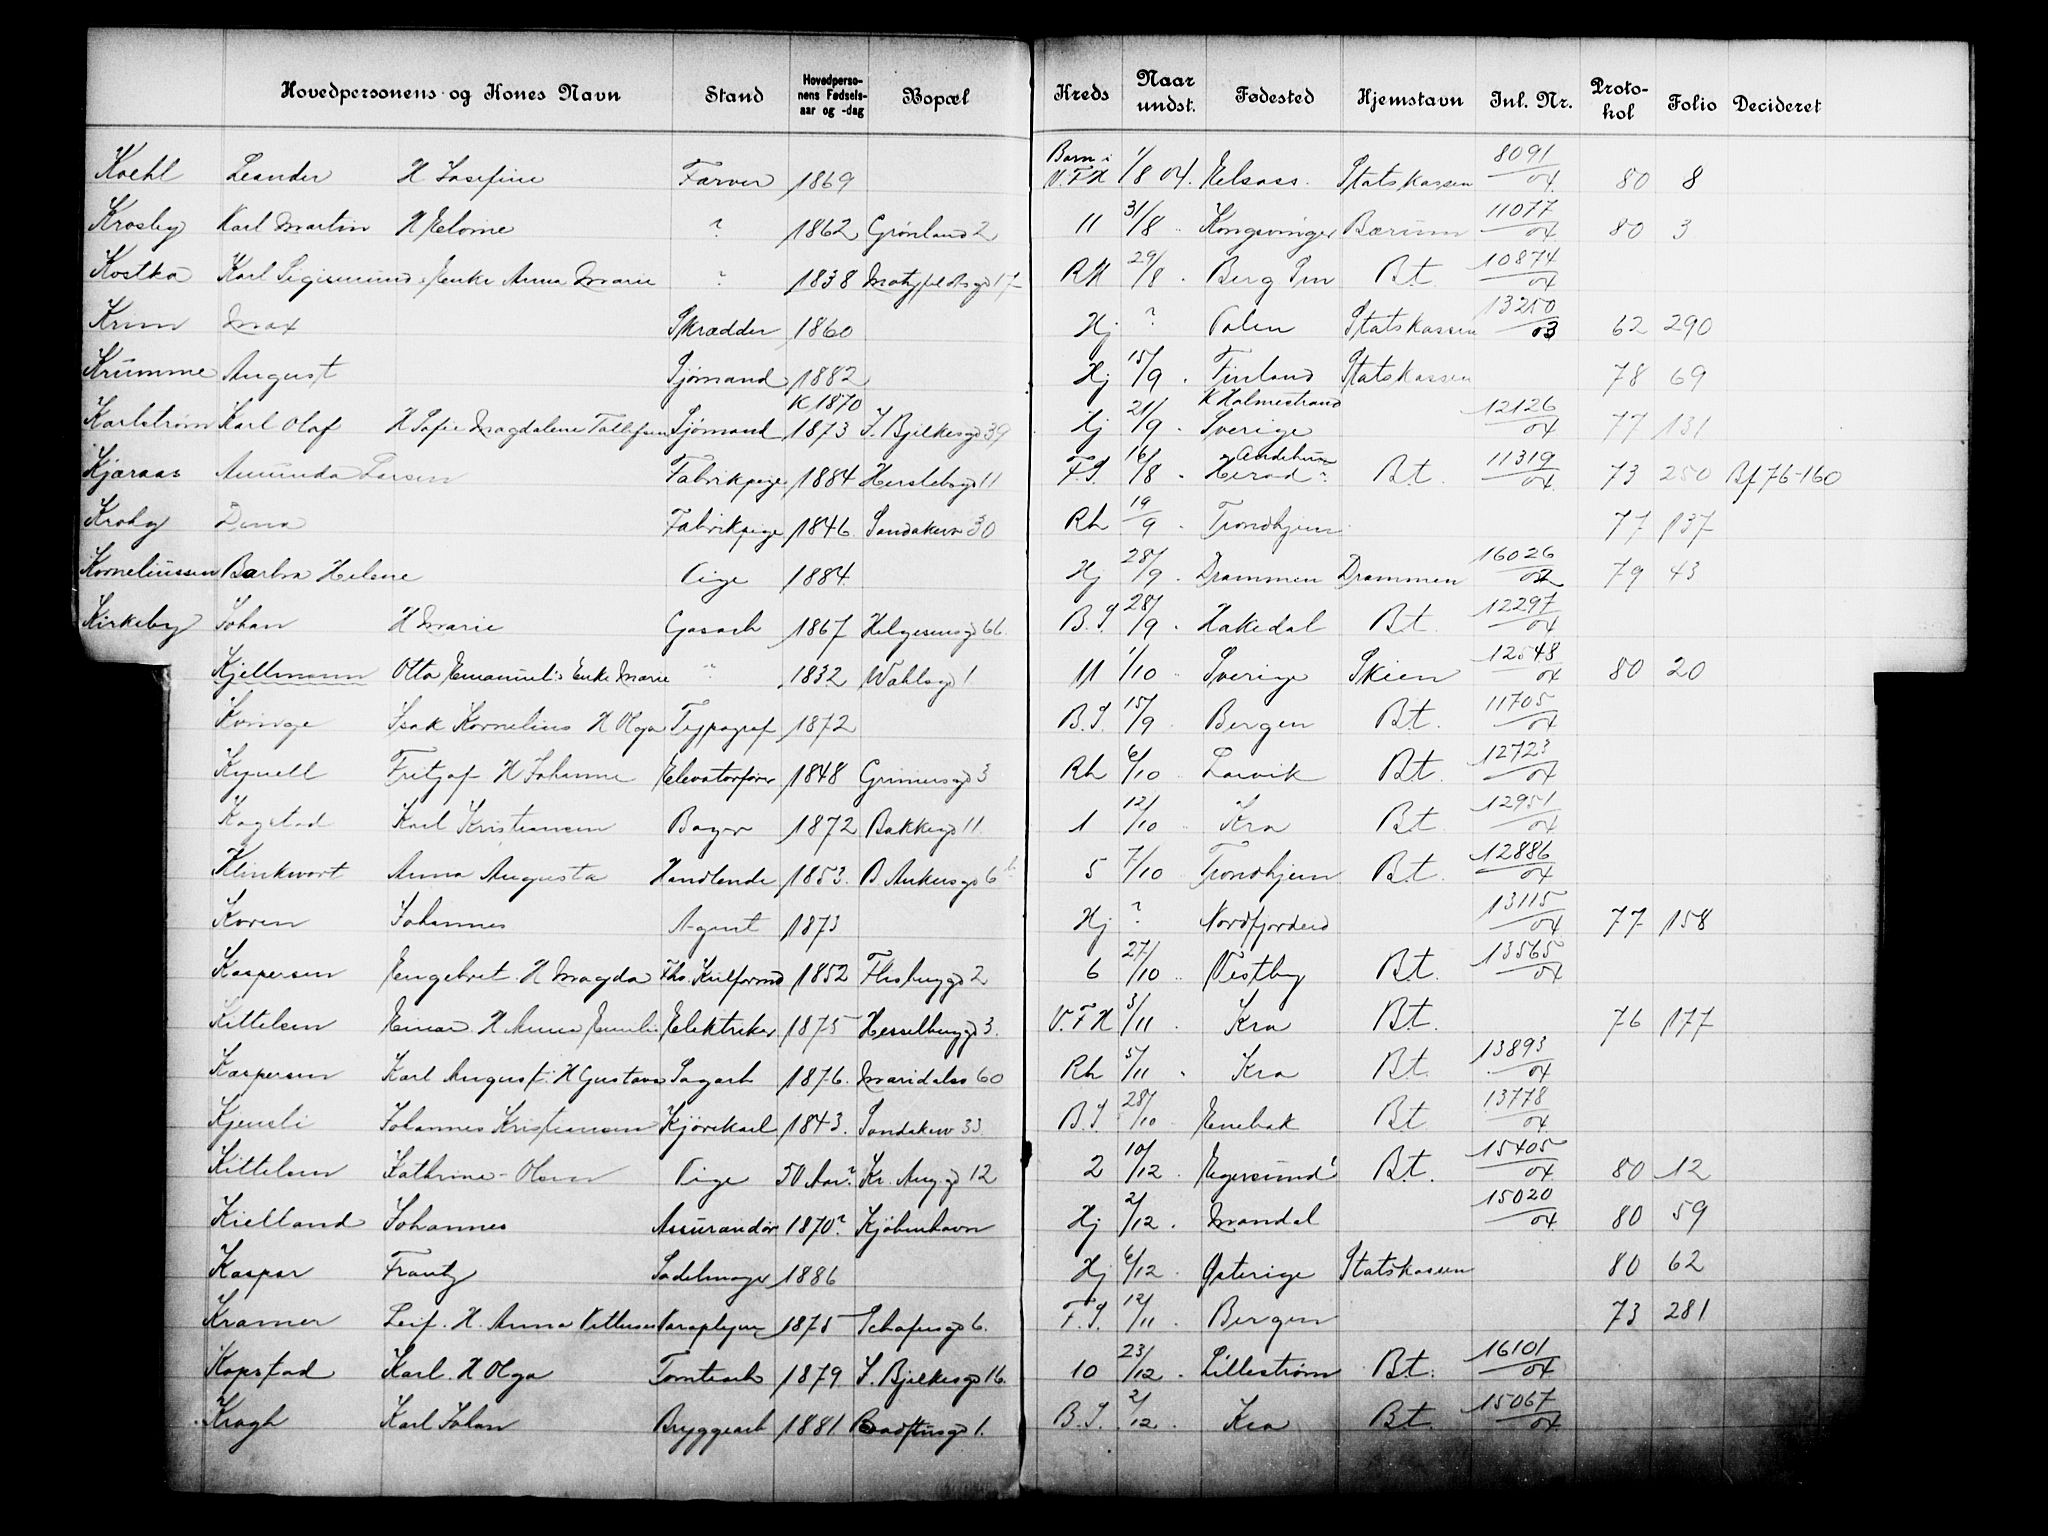 Hovedpersonens og Kones Navn Stand Hovedpersonens Fødselsaar og -dag Bopæl Kreds Naar undst. Fødested Hjemstavn Inl. Nr. Protokol Folio Decideret
Koehl Leander H Josefine Farver 1869 Barn i V.F.H 1/8 04. Elsass. Statskassen 8091/04 80 8
Krosby Karl Martin H Elvine ? 1862 Grønland 2 11 31/8 " Kongsvinger Bærum 11077/04 80 3
Kostka Karl Sigismund. Enke Anna Marie " 1838 17 RH 29/8 . Berg Sm Bt. 10874/04
Krim Max Skrædder 1860 Hj ? Polen Statskassen 13250/03 62 290
Krumme August Sjømand 1882 Hj 15/9 . Finland Statskassen 78 69
Karlstrøm Karl Olaf H Sofie Magdalene Tollefsen Sjømand K 1870 1873 J. Bjelkesgd 39 Hj 21/9 . K Holmestrand Sverige 12126/04 77 131
Kjæraas Amunda Larsen Fabrikpige 1884 Herslebsgd 11 F.S. 16/8 . Andebu Herad ? Bt. 11319/04 73 250 Bf 76-160
Kroby Dina Fabrikpige 1846 Sandakerv 30 Rh 19/9 . Trondhjem 77 137
Korneliussen Barbra Helene Pige 1884 Hj 28/9 . Drammen Drammen 16026/02 79 43
Kirkeby Johan H Marie Gasarb 1867 Helgesensgd 66 B.S. 28/9 . Hakedal Bt. 12297/04
Kjellmann Otto Emanuel: Enke Marie " 1832 Wahlsgd 1 11 1/10 . Sverige Skien 12548/04 80 20
Kvinge Isak Kornelius H Olga Typograf 1872 B.S. 15/9 . Bergen Bt. 11705/04
Kynell Fritjof H Johanne Elevatorfører 1848 Grünersgd 3 Rh 6/10 " Larvik Bt. 12723/04
Kagstad Karl Kristiansen Bager 1872 Bakkegd 11. 1 12/10 " Kra Bt. 12951/04
Klinkvort Anna Augusta Handlende 1853. B Ankersgd 6 b 5 7/10 Trondhjem Bt. 12886/04
Koren Johannes Agent 1873 Hj ? Nordfjordeid 13115/04 77 158
Kaspersen Engebret. H Magda Fhs. 1852 Flisbyggd 2 6 27/10 " Vestby Bt. 13565/04
Kittelsen Einar H Anna Emilie Elektriker 1875 Hesselberggd 3. V.F.H 3/11 . Kra Bt. 76 177
Kaspersen Karl August. H Gustava Sagarb 1876. Maridalsv 60 Rh 5/11 . Kra Bt. 13893/04
Kjensli Johannes Kristiansen Kjørekarl 1843. Sandakerv 33. B.S. 28/10 . Enebak Bt 13778/04
Kittelsen Kathrine - Olsen Pige 50 Aar? Kr. Aug. gd 12 2 10/12 . Egersund Bt. 15405/04 80 12
Kielland Johannes Assurandør 1870? Kjøbenhavn Hj 2/12 . Mandal 15020/04 80 59
Kaspar Frantz Sadelmager 1886 Hj 6/12 . Østerige Statskassen 80 62
Kramer Leif. H. Anna Paraplym 1875 Schafersgd 6. F.S. 12/11 . Bergen 73 281
Kopstad Karl. H Olga Tomtearb 1879 J. Bjelkesgd 16. 10 23/12 . Lillestrøm Bt. 16101/04
Kragh Karl Johan Bryggearb 1881 1. B.S. 2/12 . Kra Bt. 15067/04